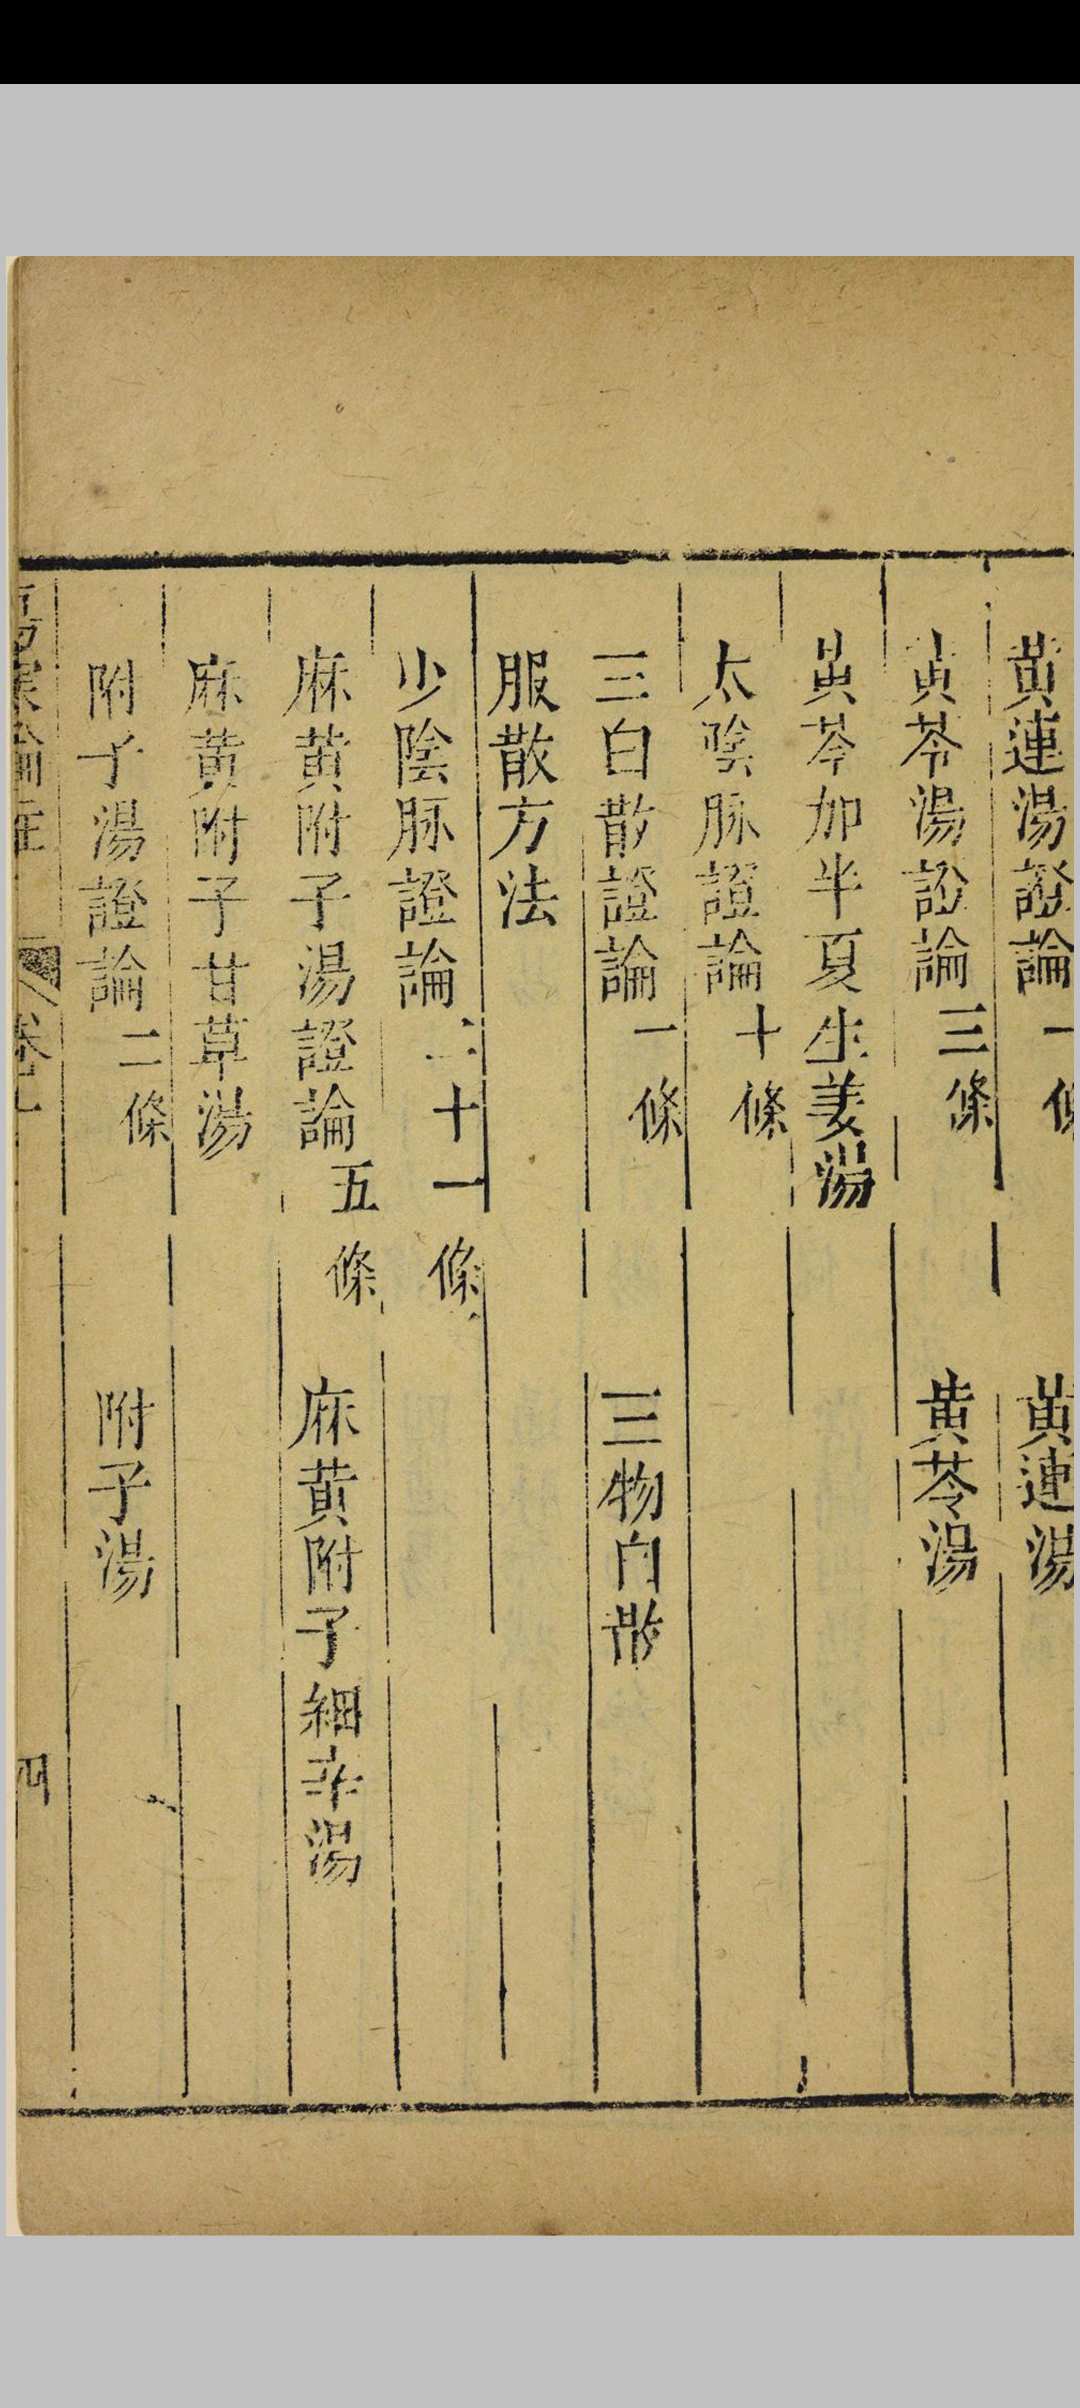 黄連湯證論一條　黄連湯
黄芩湯證論三條　黄芩湯
黄芩加半夏生姜湯
太陰脉證論十條
三白散證論一條　三物白散
服散方法
少陰脉證論二十一條
麻黄附子湯證論五條　麻黄附子細辛湯
麻黄附子甘草湯
附子湯證論二條　附子湯
四